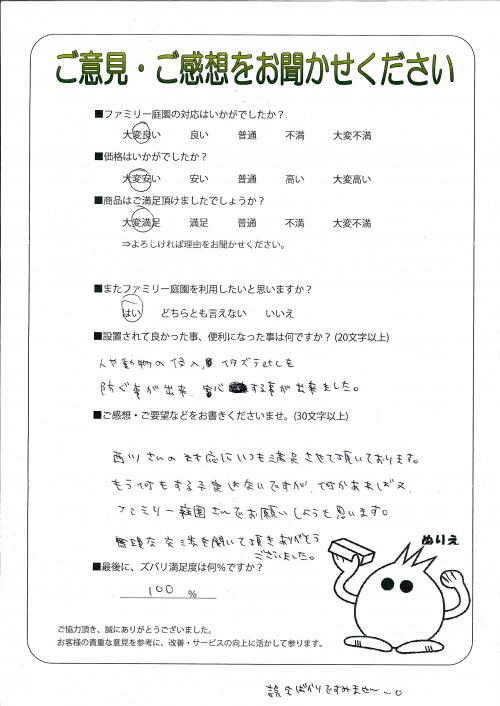 ご意見・ご感想をお聞かせください
■ファミリー庭園の対応はいかがでしたか？
大変良い 良い 普通 不満 大変不満
■価格はいかがでしたか？
大変安い 安い 普通 高い 大変高い
■商品はご満足頂けましたでしょうか？
大変満足 満足 普通 不満 大変不満
⇒よろしければ理由をお聞かせください。
■またファミリー庭園を利用したいと思いますか？
はい どちらとも言えない いいえ
■設置されて良かった事、便利になった事は何ですか？(20文字以上)
人や動物の侵入、イタズラetcを
防ぐ事が出来、安心する事が出来ました。
■ご感想・ご要望などをお書きくださいませ。(30文字以上)
西川さんの対応にいつも満足させて頂いております。
もう何もする予定は無いですが、何かあれば又、
ファミリー庭園さんでお願いしようと思います。
無理な交渉を聞いて頂きありがとう
ございました。
ぬりえ
■最後に、ズバリ満足度は何％ですか？
100 %
ご協力頂き、誠にありがとうございました。
お客様の貴重な意見を参考に、改善・サービスの向上に活かして参ります。
ばかりですみませ〜ん…。